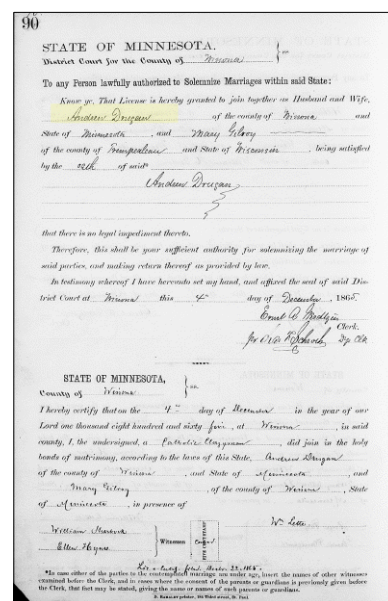 90
STATE OF MINNESOTA.
District Court for the County of Winona } ss.
To any Person lawfully authorized to Solemnize Marriages within said State:
Know ye, That License is hereby granted to join together as Husband and Wife,
Andrew Drugan of the county of Winona and
State of Minnesota, and Mary Gilroy
of the county of Trempealeau and State of Wisconsin, being satisfied
by the oath of said*
Andrew Drugan
that there is no legal impediment thereto,
Therefore, this shall be your sufficient authority for solemnizing the marriage of
said parties, and making return thereof as provided by law.
In testimony whereof I have hereunto set my hand, and affixed the seal of said Dis-
trict Court at Winona this 4th day of December, 1865.
Clerk.
STATE OF MINNESOTA,
County of Winona } ss.
I hereby certify that on the 4th day of December in the year of our
Lord one thousand eight hundred and sixty five, at Winona, in said
county, I, the undersigned, a Catholic Clergyman did join in the holy
bands of matrimony, according to the laws of this State, Andrew Drugan
of the county of Winona, and State of Minnesota, and
Mary Gilroy, of the county of Winona, State
of Minnesota, in presence of
William
Ellen Hynes } Witnesses
*In case either of the parties to the contemplated marriage are under age, insert the names of other witnesses
examined before the Clerk, and in cases where the consent of the parents or guardians is previously given before
the Clerk, that fact may be stated, giving the name or names of such parents or guardians.